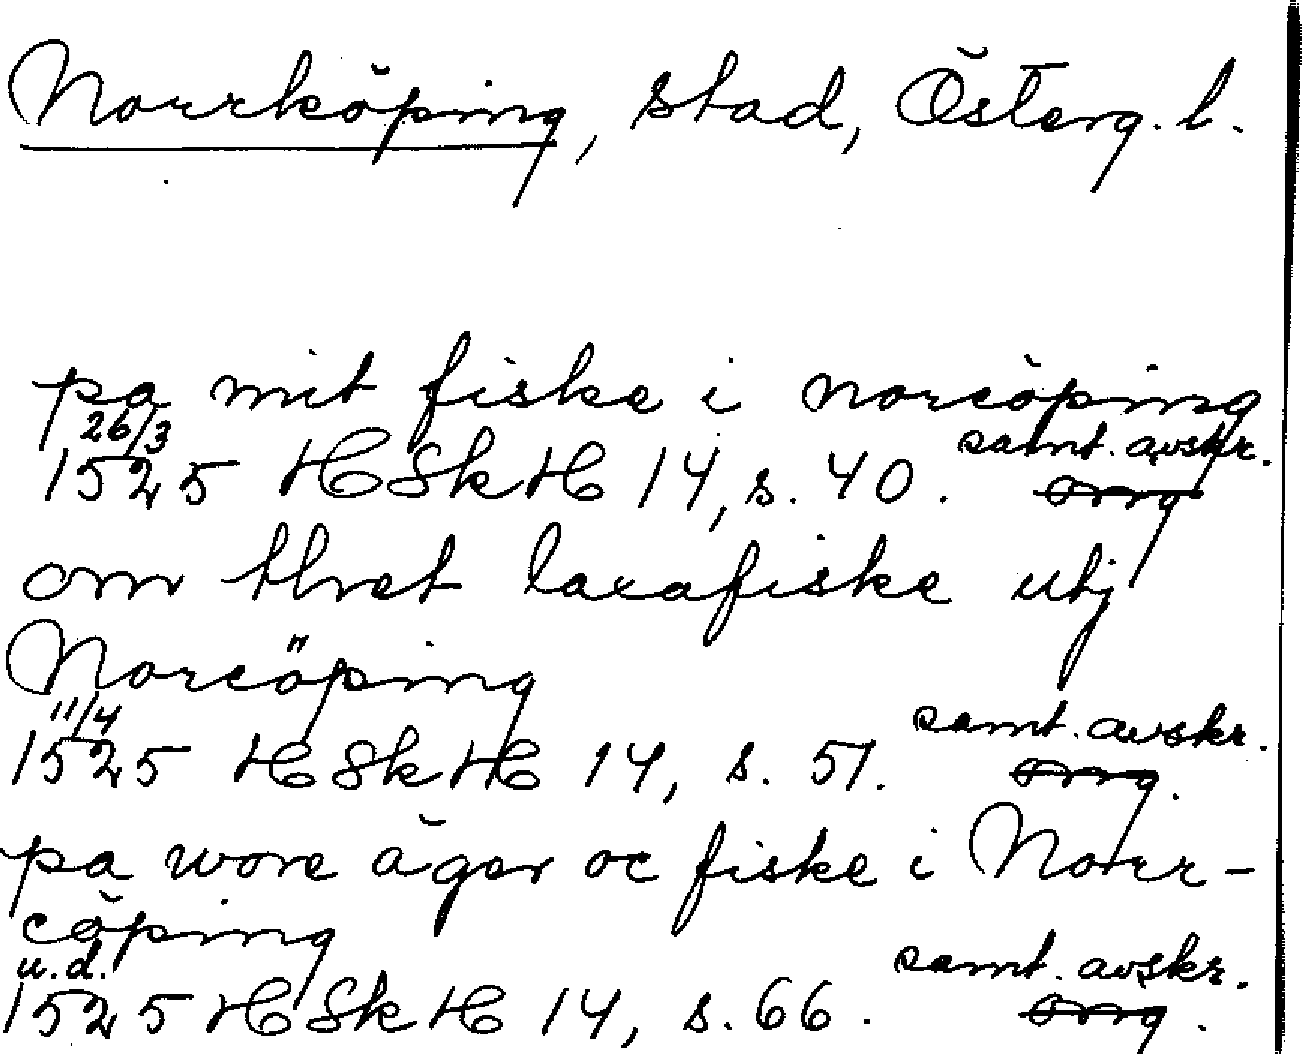 Norrköping, stad, Österg. l.
pa mit fiske i norcöping
26/3 samt. avskr.
1525 HSkH 14, s. 40. orig
om thet laxafiske utj
Norcöping
11/4 samt. avskr.
1525 HSkH 14, s. 51. orig.
pa wore äger oc fiske i Norr-
cöping
u.d. samt. avskr.
1525 HSkH 14, s. 66. orig.